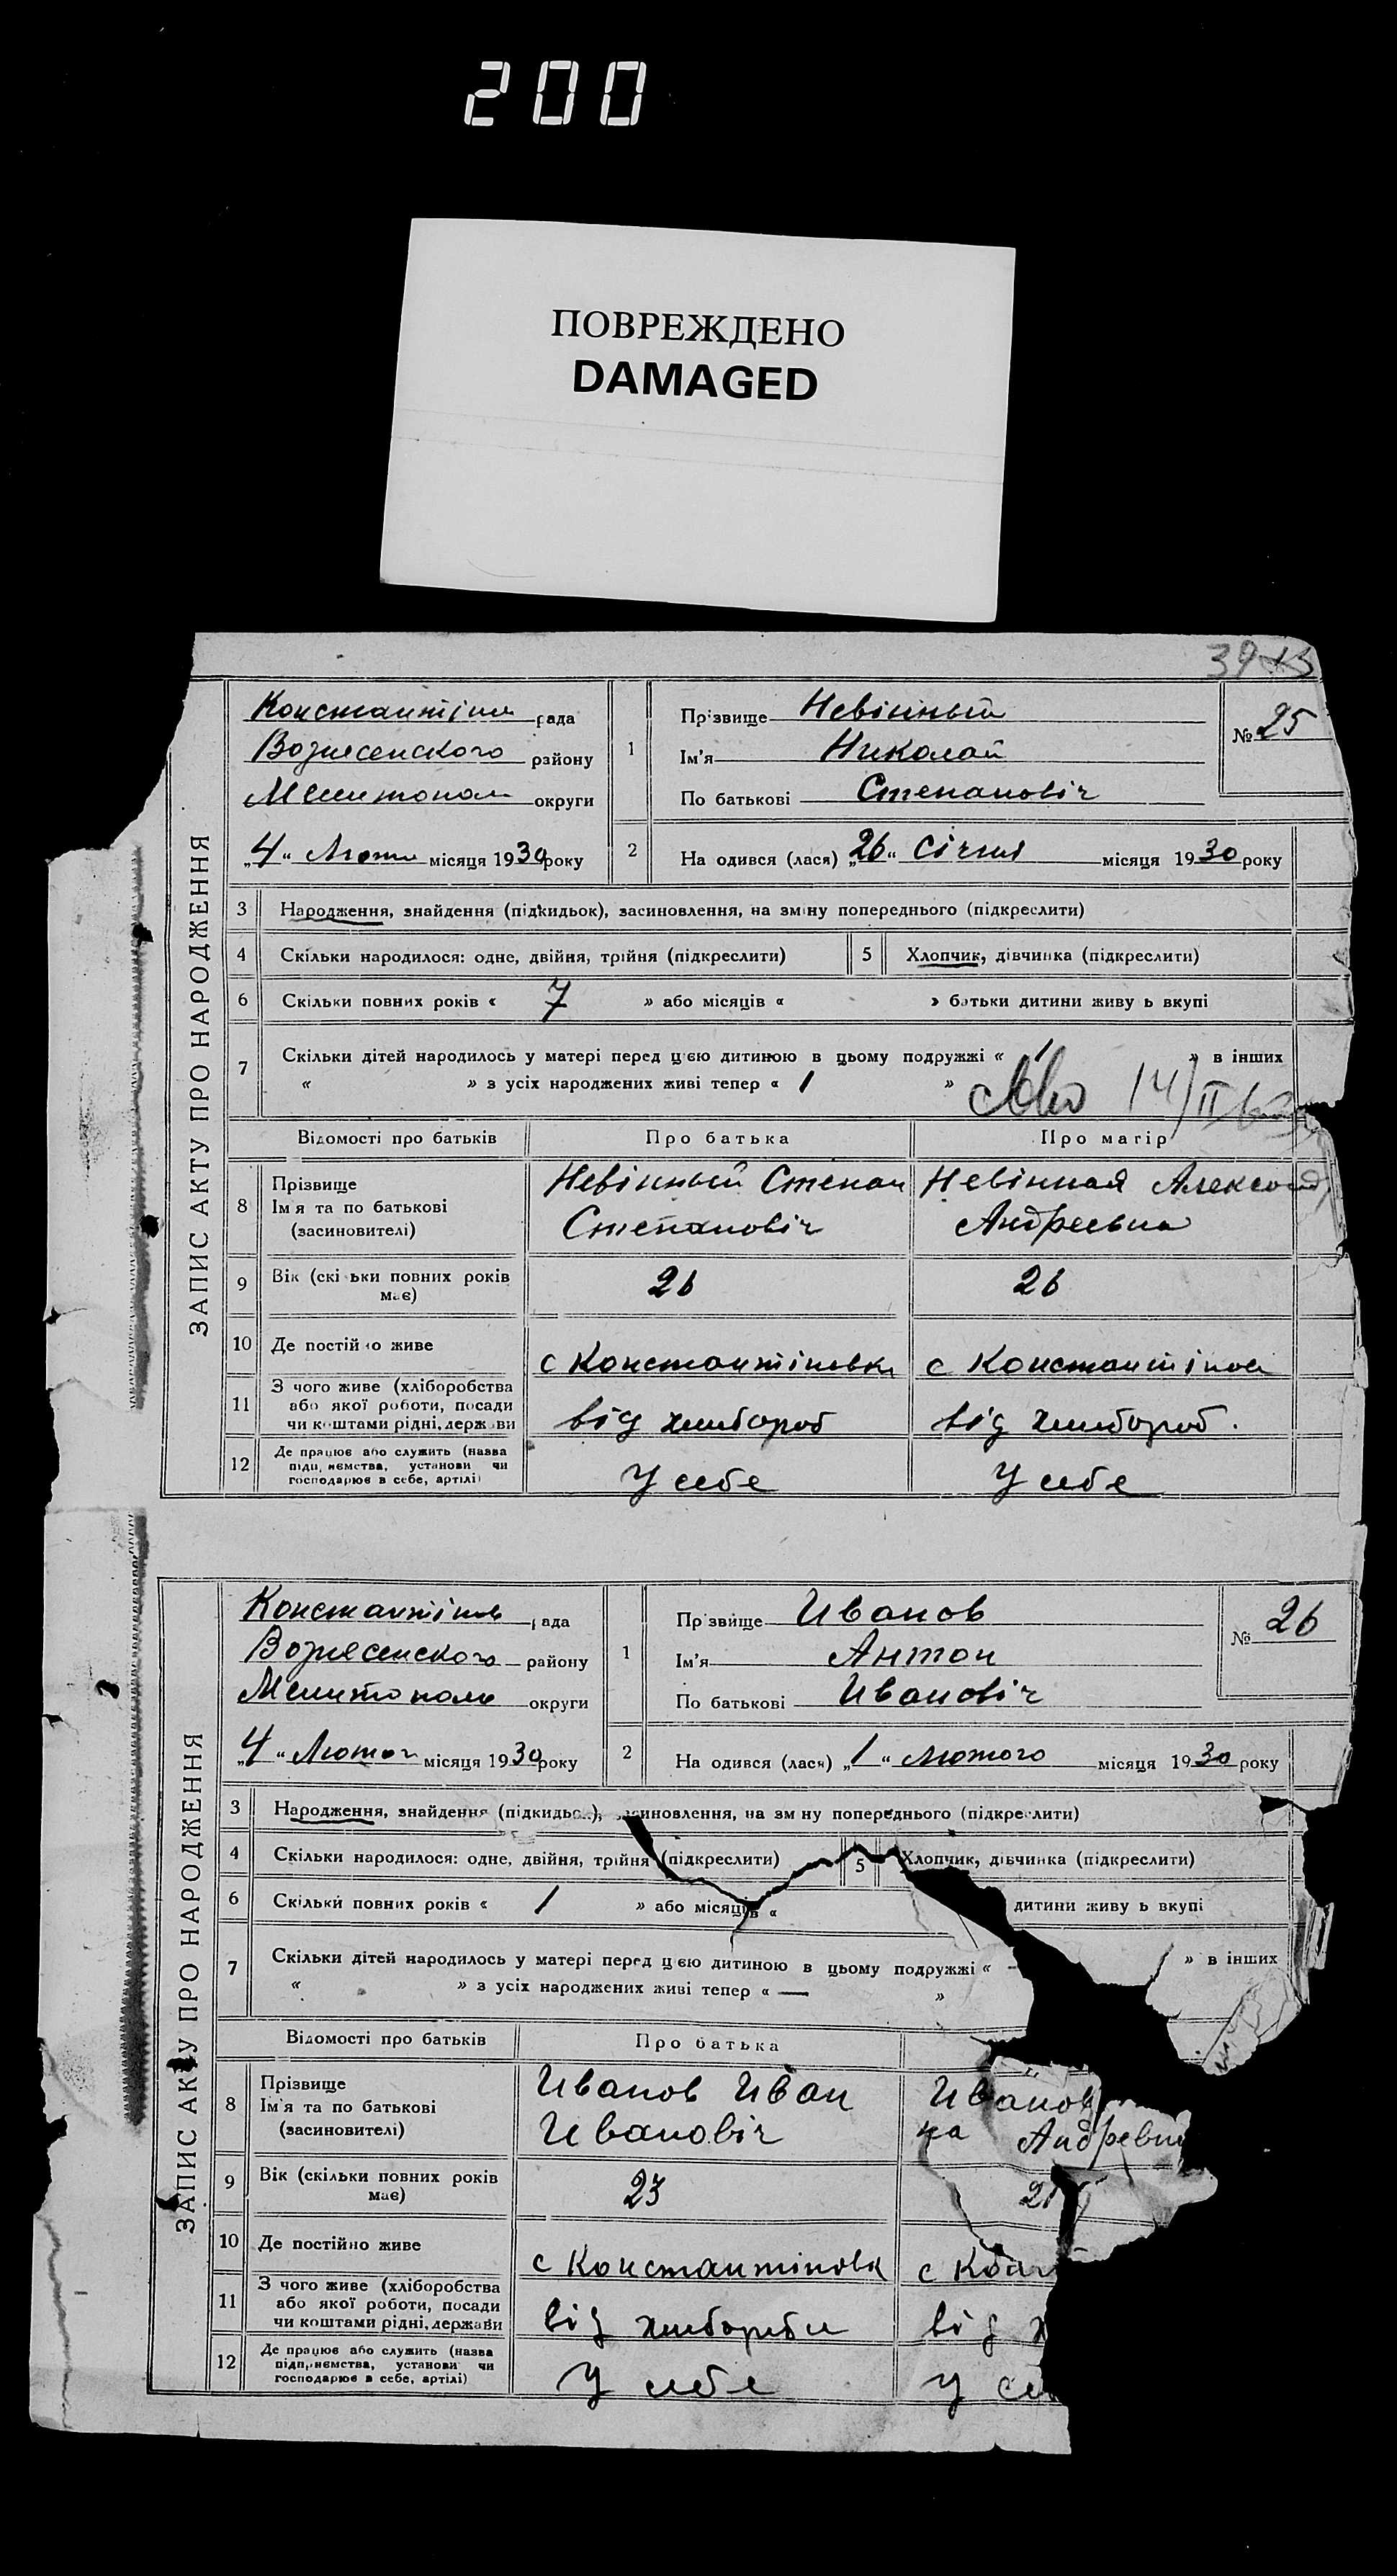 200
ПОВРЕЖДЕНО
DAMAGED
39
ЗАПИС АКТУ ПРО НАРОДЖЕННЯ
Константінов рада
Вознесенского району
Мелитопол округи
„4“ Лютого місяця 1930 року
1
Прізвище Невінный
Ім'я Николай
По батькові Степановіч
№ 25
2 На одився (лася) „26“ Січня місяця 1930 року
3 Народження, знайдення (підкидьок), засиновлення, на зм ну попереднього (підкреслити)
4 Скільки народилося: одне, двійня, трійня (підкреслити) 5 Хлопчик, дівчинка (підкреслити)
6 Скільки повних років « 7 » або місяців « » батьки дитини живу ь вкупі
7 Скільки дітей народилось у матері перед цією дитиною в цьому подружжі « 1 » в інших
« » з усіх народжених живі тепер « 1 »
14/II
Відомості про батьків Про батька Про матір
8 Прізвище
Ім'я та по батькові
(засиновителі)
Невінный Степан
Степановіч
Невінная Александ
Андреевна
9 Вік (скі ьки повних років
має) 26 26
10 Де постійно живе с Константіновка с Константінов
11 З чого живе (хліборобства
або якої роботи, посади
чи коштами рідні, держави від хлибороб від хлибороб.
12 Де працює або служить (назва
підприємства, установи чи
господарює в себе, артілі) У себе У себе
ЗАПИС АКТУ ПРО НАРОДЖЕННЯ
Константінов рада
Вознесенского району
Мелитополь округи
„4“ Лютого місяця 1930 року
1
Прізвище Иванов
Ім'я Антон
По батькові Ивановіч
№ 26
2 На одився (лася) „1“ лютого місяця 1930 року
3 Народження, знайдення (підкидьок), засиновлення, на зм ну попереднього (підкреслити)
4 Скільки народилося: одне, двійня, трійня (підкреслити) 5 Хлопчик, дівчинка (підкреслити)
6 Скільки повних років « 1 » або місяців « дитини живу ь вкупі
7 Скільки дітей народилось у матері перед цією дитиною в цьому подружжі « — » в інших
« » з усіх народжених живі тепер « — »
Відомості про батьків Про батька
8 Прізвище
Ім'я та по батькові
(засиновителі)
Иванов Иван
Ивановіч
Иванов
на Андревн
9 Вік (скільки повних років
має) 23 21
10 Де постійно живе с Константіновк с Кон
11 З чого живе (хліборобства
або якої роботи, посади
чи коштами рідні, держави від хлиборобы від х
12 Де працює або служить (назва
підприємства, установи чи
господарює в себе, артілі) У себе У се